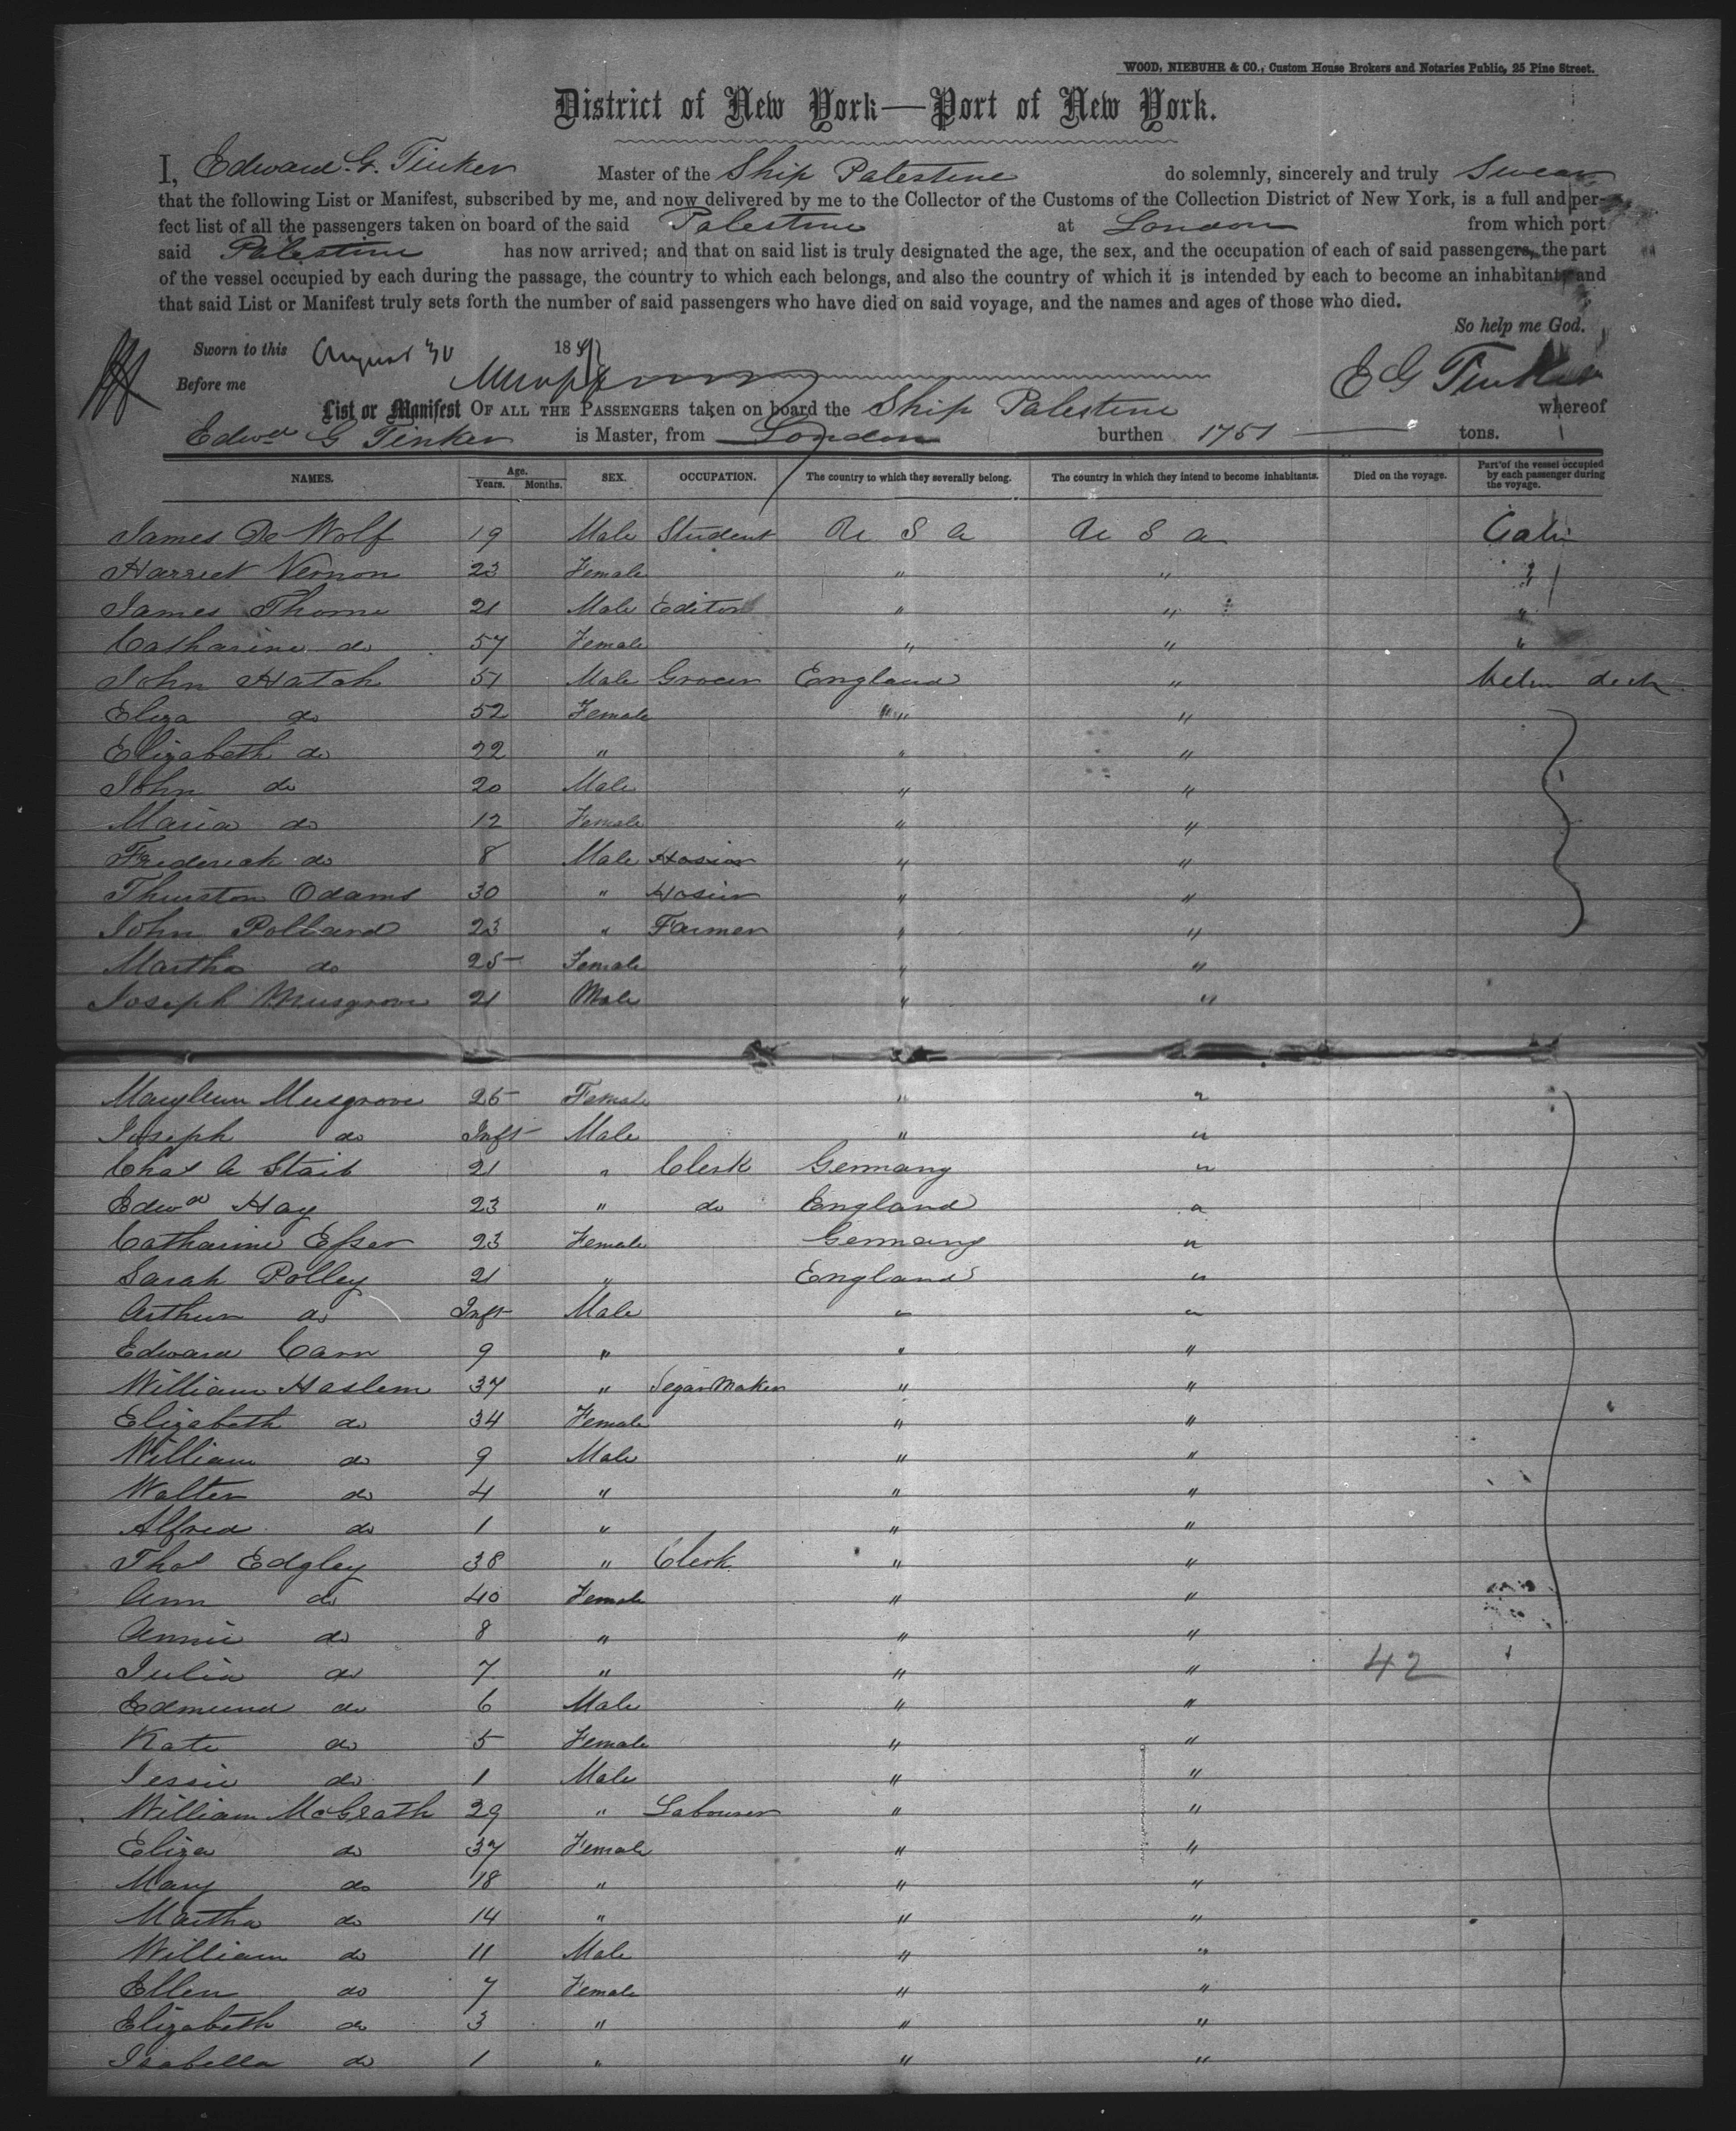 WOOD, NIEBUHR & CO., Custom House Brokers and Notaries Public, 25 Pine Street.
District of New York—Port of New York.
I, Edward. G. Tinker Master of the Ship Palestine do solemnly, sincerely and truly Swear
that the following List or Manifest, subscribed by me, and now delivered by me to the Collector of the Customs of the Collection District of New York, is a full and per-
fect list of all the passengers taken on board of the said Palestine at London from which port
said Palestine has now arrived; and that on said list is truly designated the age, the sex, and the occupation of each of said passengers, the part
of the vessel occupied by each during the passage, the country to which each belongs, and also the country of which it is intended by each to become an inhabitant; and
that said List or Manifest truly sets forth the number of said passengers who have died on said voyage, and the names and ages of those who died.
So help me God.
Sworn to this August 30 18
Before me E G Tinker
List or Manifest OF ALL THE PASSENGERS taken on board the Ship Palestine whereof
Edwd G Tinker is Master, from London burthen 1751 tons.
NAMES. Age. Years. Months. SEX. OCCUPATION. The country to which they severally belong. The country in which they intend to become inhabitants. Died on the voyage. Part of the vessel occupied by each passenger during the voyage.
James De Wolf 19 Male Student U S A U S A Cabin
Harriet Vernon 23 Female " " "
James Thorne 21 Male Editor " " "
Catharine do 57 Female " " "
John Hatch 51 Male Grocer England " deck
Eliza do 52 Female " "
Elizabeth do 22 " " "
John do 20 Male " "
Maria do 12 Female " "
Frederick do 8 Male Hosier " "
Thurston Odams 30 " Hosier " "
John Pollard 23 " Farmer " "
Martha do 25 Female " "
Joseph Musgrove 21 Male " "
MaryAnn Musgrove 25 Female " "
Joseph do Inft Male " "
Chas A Staib 21 " Clerk Germany "
Edwd Hay 23 " do England "
Catharine Esser 23 Female Germany "
Sarah Polley 21 " England "
Arthur do Inft Male " "
Edward Carn 9 " " "
William Haslem 37 " Segar Maker " "
Elizabeth do 34 Female " "
William do 9 Male " "
Walter do 4 " " "
Alfred do 1 " " "
Thos Edgley 38 " Clerk " "
Ann do 40 Female " "
Annie do 8 " " "
Julia do 7 " " " 42
Edmund do 6 Male " "
Kate do 5 Female " "
Jessie do 1 Male " "
William McGrath 29 " Labourer " "
Eliza do 37 Female " "
Mary do 18 " " "
Martha do 14 " " "
William do 11 Male " "
Ellen do 7 Female " "
Elizabeth do 3 " " "
Isabella do 1 " " "